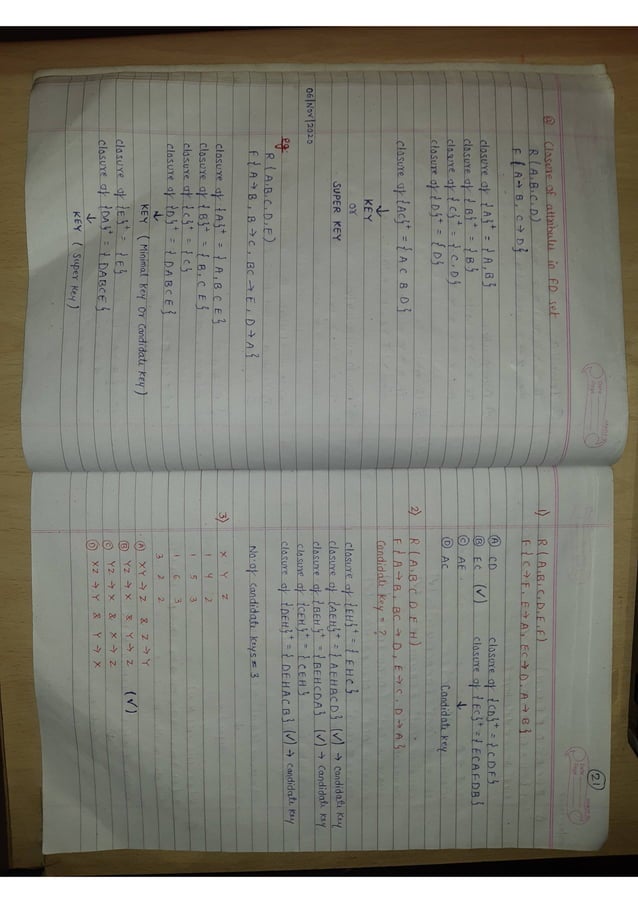 @ Closure of attribute in FD set
R (A,B,C,D)
F { A → B , C → D }
closure of {A}⁺ = { A, B }
closure of {B}⁺ = { B }
closure of {C}⁺ = { C, D }
closure of {D}⁺ = { D }
closure of {AC}⁺ = { A C B D }
↓
KEY
or
SUPER KEY
06/Nov/2020
eg:
R (A,B,C,D,E)
F { A → B , B → C , BC → E , D → A }
closure of {A}⁺ = { A, B C E }
closure of {B}⁺ = { B, C E }
closure of {C}⁺ = { C }
closure of {D}⁺ = { D A B C E }
↓
KEY ( Minimal key or candidate key )
closure of {E}⁺ = { E }
closure of {DA}⁺ = { D A B C E }
↓
KEY ( Super key )
21
1) R (A,B,C,D,E,F)
F { C → F , E → A , EC → D , A → B }
Ⓐ CD closure of {CD}⁺ = { C D F }
Ⓑ EC (√) closure of {EC}⁺ = { E C A F D B }
Ⓒ AE ↓
Ⓓ AC Candidate key
2) R (A,B,C,D,E,H)
F { A → B , BC → D , E → C , D → A }
Candidate key = ?
closure of {EH}⁺ = { E H C }
closure of {AEH}⁺ = { A E H B C D } (√) → candidate key
closure of {BEH}⁺ = { B E H C D A } (√) → candidate key
closure of {CEH}⁺ = { C E H }
closure of {DEH}⁺ = { D E H A C B } (√) → candidate key
No. of candidate keys = 3
3) X Y Z
1 4 2
1 5 3
1 6 3
3 2 2
Ⓐ XY → Z & Z → Y
Ⓑ YZ → X & Y → Z (√)
Ⓒ YZ → X & X → Z
Ⓓ XZ → Y & Y → X